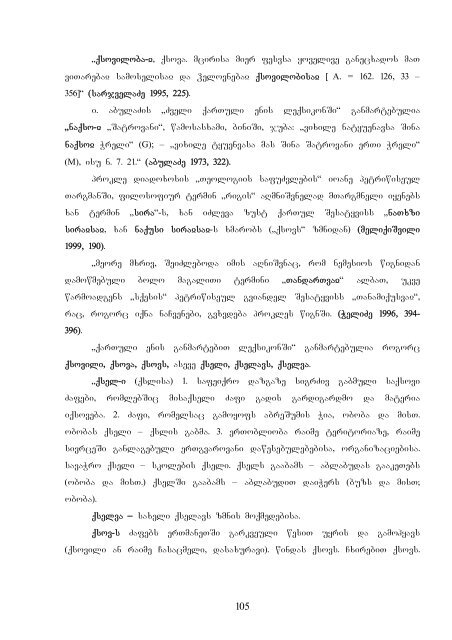 „ქსოვილობა-ჲ, ქსოვა. მცირისა მიერ ფესვსა ყოველივე განუცხადოს მათ
ვითარებაჲ სამოსელისაჲ და ჴელოვნებაჲ ქსოვილობისაჲ [ A. = 162. 126, 33 –
356]“ (სარჯველაძე 1995, 225).
ი. აბულაძის „ძველი ქართული ენის ლექსიკონში“ განმარტებულია
„ნაქსო-ჲ „შატროვანი“, წამოსასხამი, ბინიში, ჯუბა: „ვიხილე ნატყუენავსა შინა
ნაქსოჲ ჭრელი“ (G); – „ვიხილე ტყუენვასა მას შინა შატროვანი ერთი ჭრელი“
(M), ისუ ნ. 7. 21.“ (აბულაძე 1973, 322).
პროკლე დიადოხოსის „თეოლოგიის საფუძვლების“ იოანე პეტრიწისეულ
თარგმანში, ფილოსოფიურ ტერმინ „რიგის“ აღმნიშვნელად მთარგმნელი იყენებს
ხან ტერმინ „სირა“-ს, ხან იძლევა ზუსტ ქართულ შესატყვისს „ნათხზი
სირაჲსაჲ, ხან ნაქუსი სირაჲსაჲ-ს ხმარობს („ქსოვს“ ზმნიდან) (მელიქიშვილი
1999, 190).
„მეორე მხრივ, შეიძლებოდა იმის აღნიშვნაც, რომ ნემესიოს წიგნიდან
დამოწმებული ბოლო მაგალითი ტერმინი „თანდართვაჲ“ ალბათ, უკვე
წარმოადგენს „სქესის“ პეტრიწისეულ გვიანდელ შესატყვისს „თანამიქუსვაჲ“,
რაც, როგორც იქნა ნაჩვენები, გვხვდება პროკლეს წიგნში. (ჭელიძე 1996, 394-
396).
„ქართული ენის განმარტებით ლექსიკონში“ განმარტებულია როგორც
ქსოვილი, ქსოვა, ქსოვს, ასევე ქსელი, ქსელავს, ქსელვა.
„ქსელ-ი (ქსლისა) 1. საფეიქრო დაზგაზე სიგრძივ გაბმული საქსოვი
ძაფები, რომლებშიც მისაქსელი ძაფი გადის გარდიგარდმო და მატერია
იქსოვება. 2. ძაფი, რომელსაც გამოყოფს აბრეშუმის ჭია, ობობა და მისთ.
ობობას ქსელი – ქსლის გაბმა. 3. ერთობლიობა რაიმე ტერიტორიაზე, რაიმე
სივრცეში განლაგებული ერთგვაროვანი დაწესებულებებისა, ორგანიზაციებისა.
სავაჭრო ქსელი – სკოლების ქსელი. ქსელს გააბამს – აბლაბუდას გააკეთებს
(ობობა და მისთ.) ქსელში გააბამს – აბლაბუდით დაიჭერს (ბუზს და მისთ;
ობობა).
ქსელვა – სახელი ქსელავს ზმნის მოქმედებისა.
ქსოვ-ს ძაფებს ერთმანეთში გარკვეული წესით უყრის და გამოჰყავს
(ქსოვილი ან რაიმე ჩასაცმელი, დასახურავი). წინდას ქსოვს. ჩხირებით ქსოვს.
105